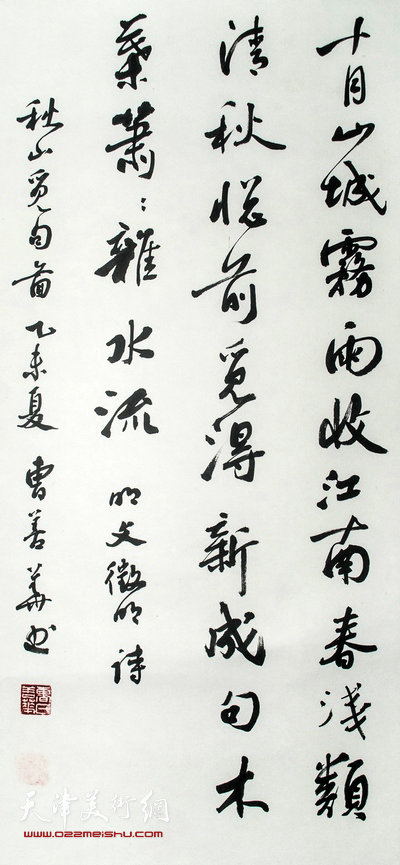 十月山城霧雨收江南春淺類
清秋牕前覓得新成句木
葉蕭〻雜水流 明文徵明詩
秋山覓句圖 乙未夏 曹善華书
曹氏善華
天津美術網
www.022meishu.com